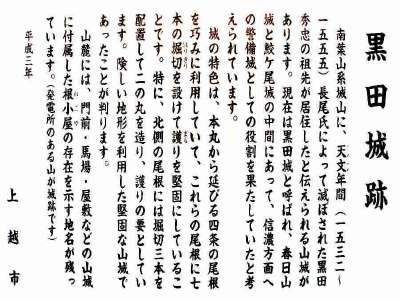 黒田城跡
南葉山系城山に、天文年間(一五三二~
一五五五)長尾氏によって滅ぼされた黒田
秀忠の祖先が居住したと伝えられる山城が
あります。現在は黒田城と呼ばれ、春日山
城と鮫ケ尾城の中間にあって、信濃方面へ
の警備城としての役割を果たしていたと考
えられています。
城の特色は、本丸から延びる四条の尾根
を巧みに利用していて、これらの尾根に七
本の堀切を設けて護りを堅固にしているこ
とです。特に、北側の尾根には堀切三本を
配置して二の丸を造り、護りの要としてい
ます。険しい地形を利用した堅固な山城で
あったことが判ります。
山麓には、門前・馬場・屋敷などの山城
に付属した根小屋の存在を示す地名が残っ
ています。(発電所のある山が城跡です)
平成三年
上越市